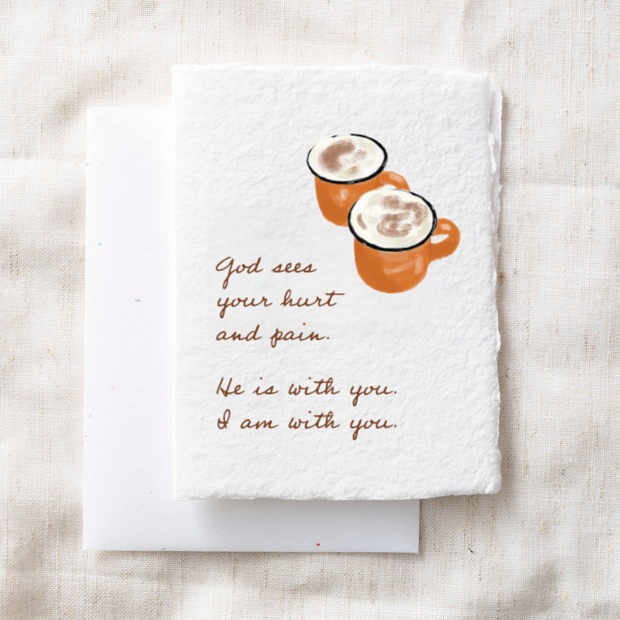 God sees
your hurt
and pain.
He is with you.
I am with you.